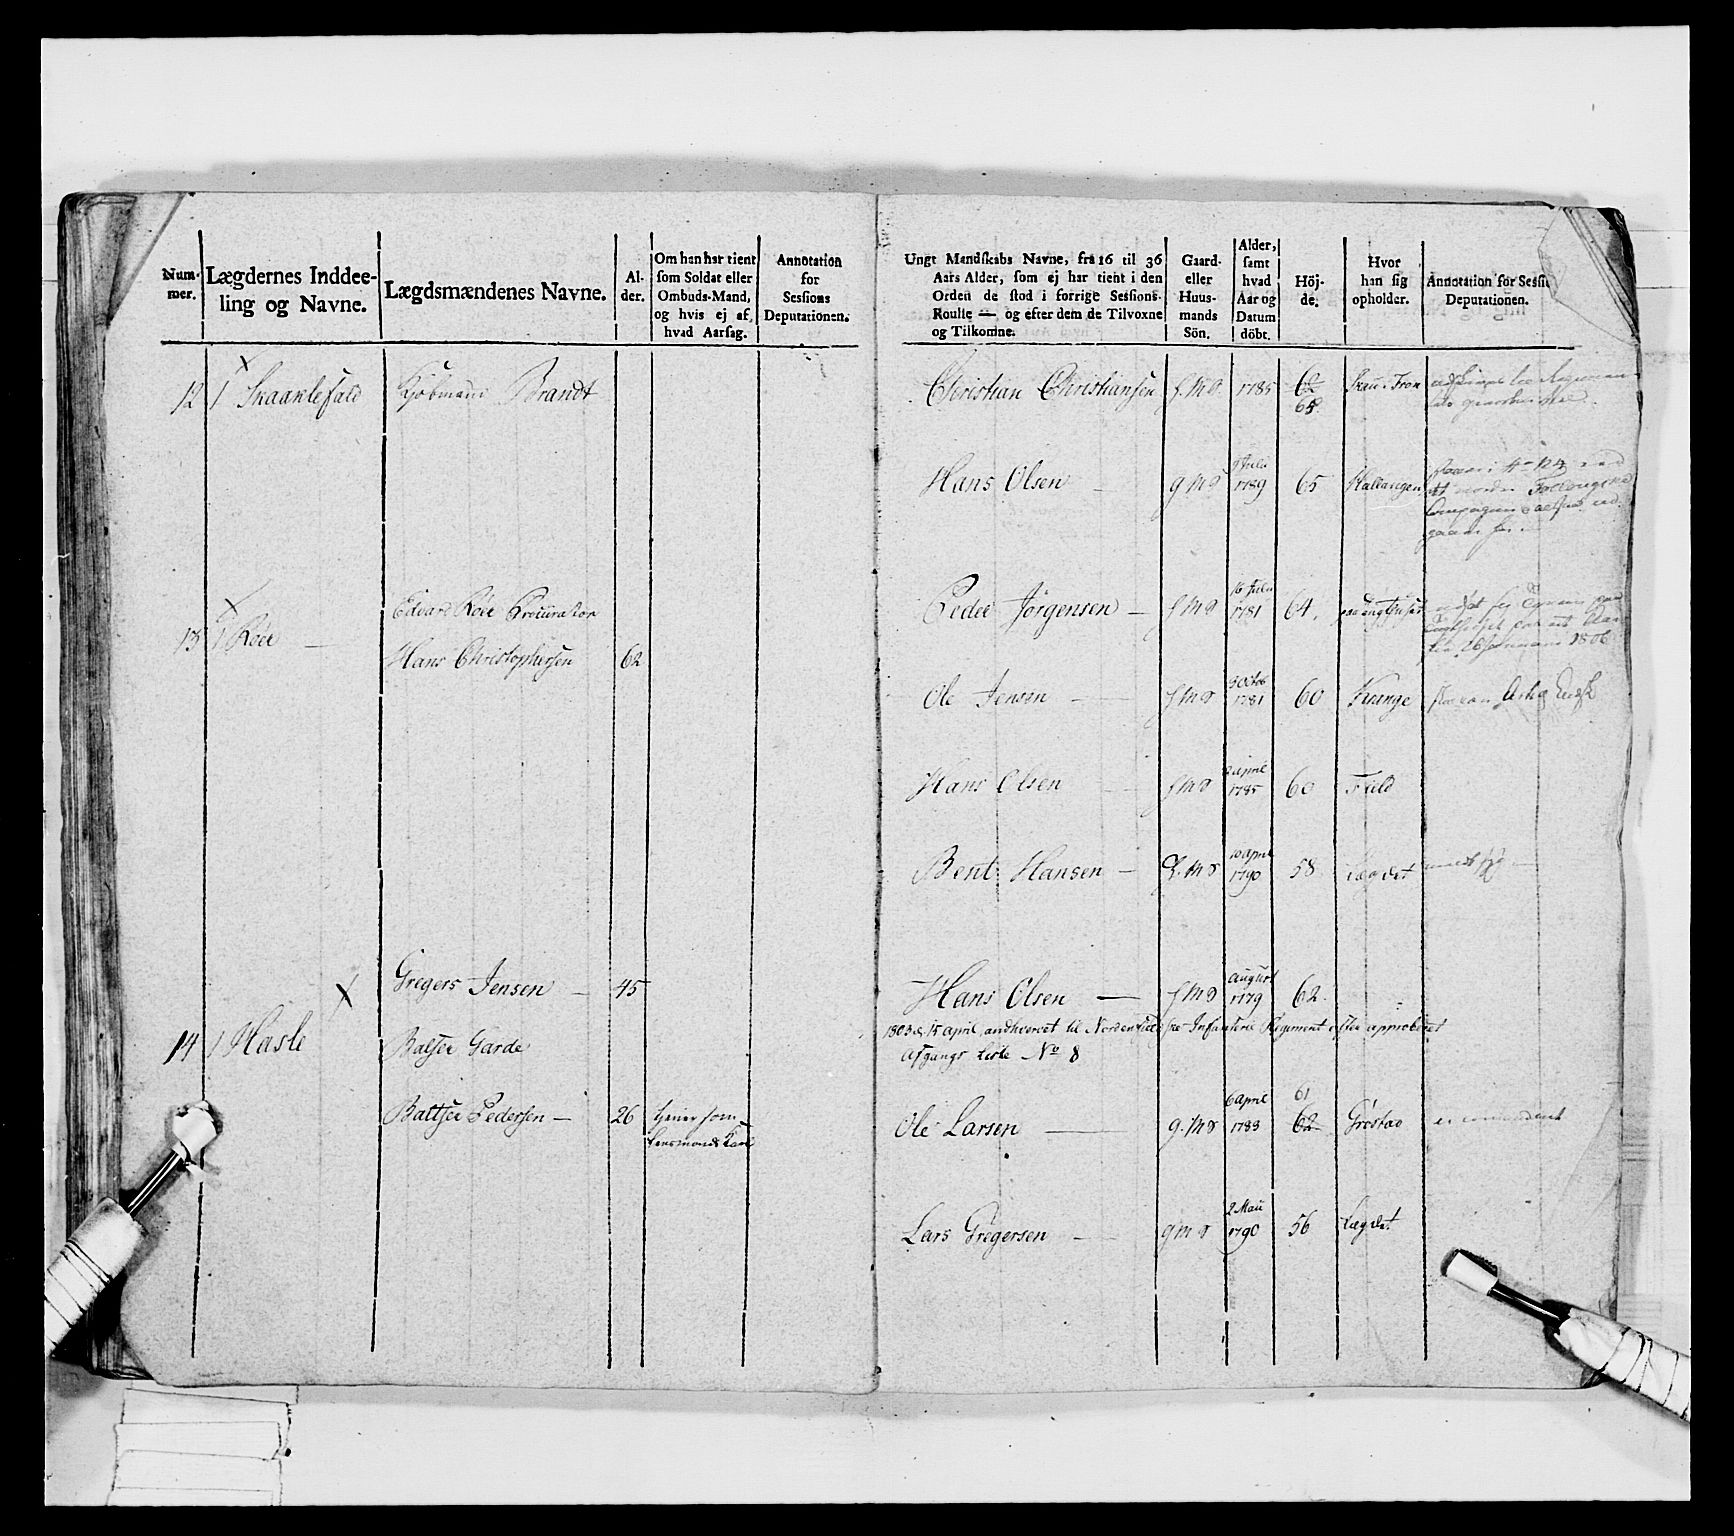 Num-
mer.
Lægdernes Inddee-
ling og Navne.
Lægdsmændenes Navne.
Al-
der.
Om han har tient
som Soldat eller
Ombuds-Mand,
og hvis ej af,
hvad Aarsag.
Annotation
for
Sessions
Deputationen.
12 1 Skaaklefald
Kjøbmand Brandt
13 1 Röer
Edvard Röer Procurator
Hans Christophersen 62
Gregers Jensen 45
14 1 Hasle
Baltser Garde
Baltser Pedersen 26 tjener som
Lensmands Karl
Ungt Mandskabs Navne, fra 16 til 36
Aars Alder, som ej har tient i den
Orden de stod i forrige Sessions-
Roulle — og efter dem de Tilvoxne
og Tilkomne.
Gaard-
eller
Huus-
mands
Sön.
Alder,
samt
hvad
Aar og
Datum
döbt.
Höj-
de.
Hvor
han sig
opholder.
Annotation for Sessi
Deputationen.
Christian Christiansen 1785
65
Hans Olsen g m s Juli 1789 65
Peder Jörgensen 16 Juli 1781 64.
26 Februari 1806
Ole Jensen 1781 60
Hans Olsen april 1785 60
Bent Hansen 10 april 1790 58 Lægdet
Hans Olsen august 1779 62.
1803 d. 15 april, andhvervet til Nordenfieldske Infanterie Regiment efter approberet
Afgangs Liste No 8
Ole Larsen g. m s 6 april 1783 61 62
Lars Gregersen g m s 2 Maii 1790 56 Lægdet